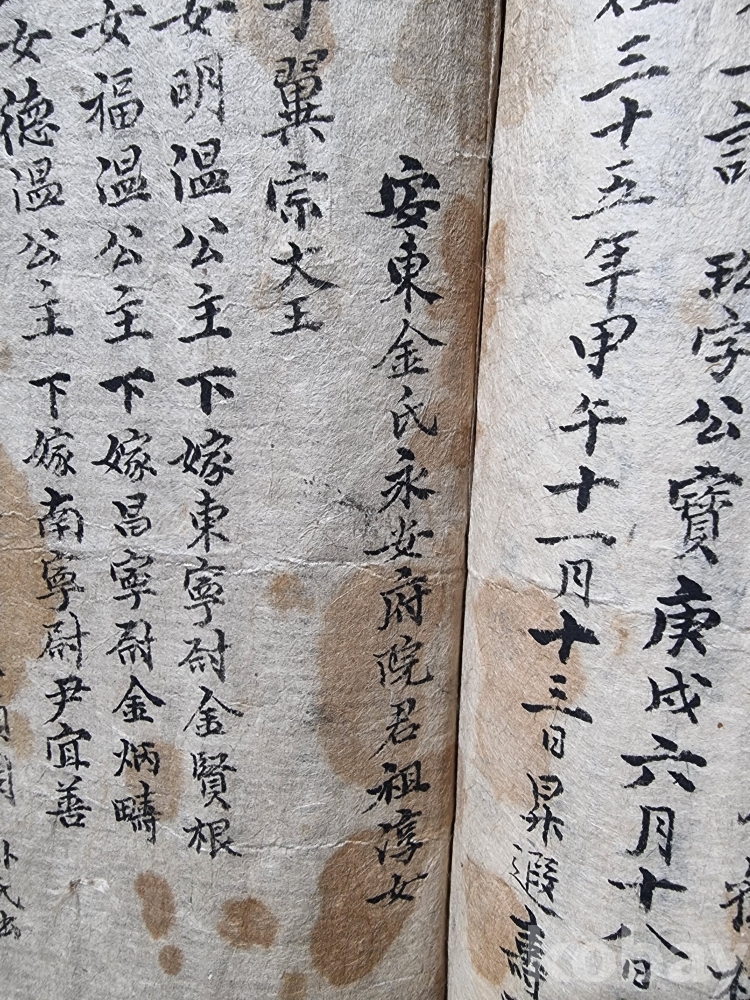 玜字公寶庚戌六月十八日
三十五年甲午十一月十三日昇遐壽
安東金氏永安府院君祖淳女
子翼宗大王
女明溫公主下嫁東寧尉金賢根
女福溫公主下嫁昌寧尉金炳疇
女德溫公主下嫁南寧尉尹宜善
kobay